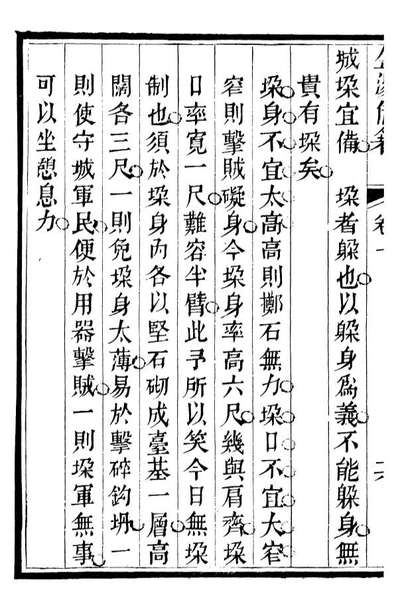 城垛宜備　垛者躲也以躲身爲義不能躲身無
貴有垛矣
垛身不宜太高高則擲石無力垛口不宜大窄
窄則擊賊礙身今垛身率高六尺幾與肩齊垛
口率寬一尺難容半臂此予所以笑今日無垛
制也須於垛身內各以堅石砌成臺基一層高
闊各三尺一則免垛身太薄易於擊碎鈎坍一
則使守城軍民便於用器擊賊一則垛軍無事
可以坐憩息力